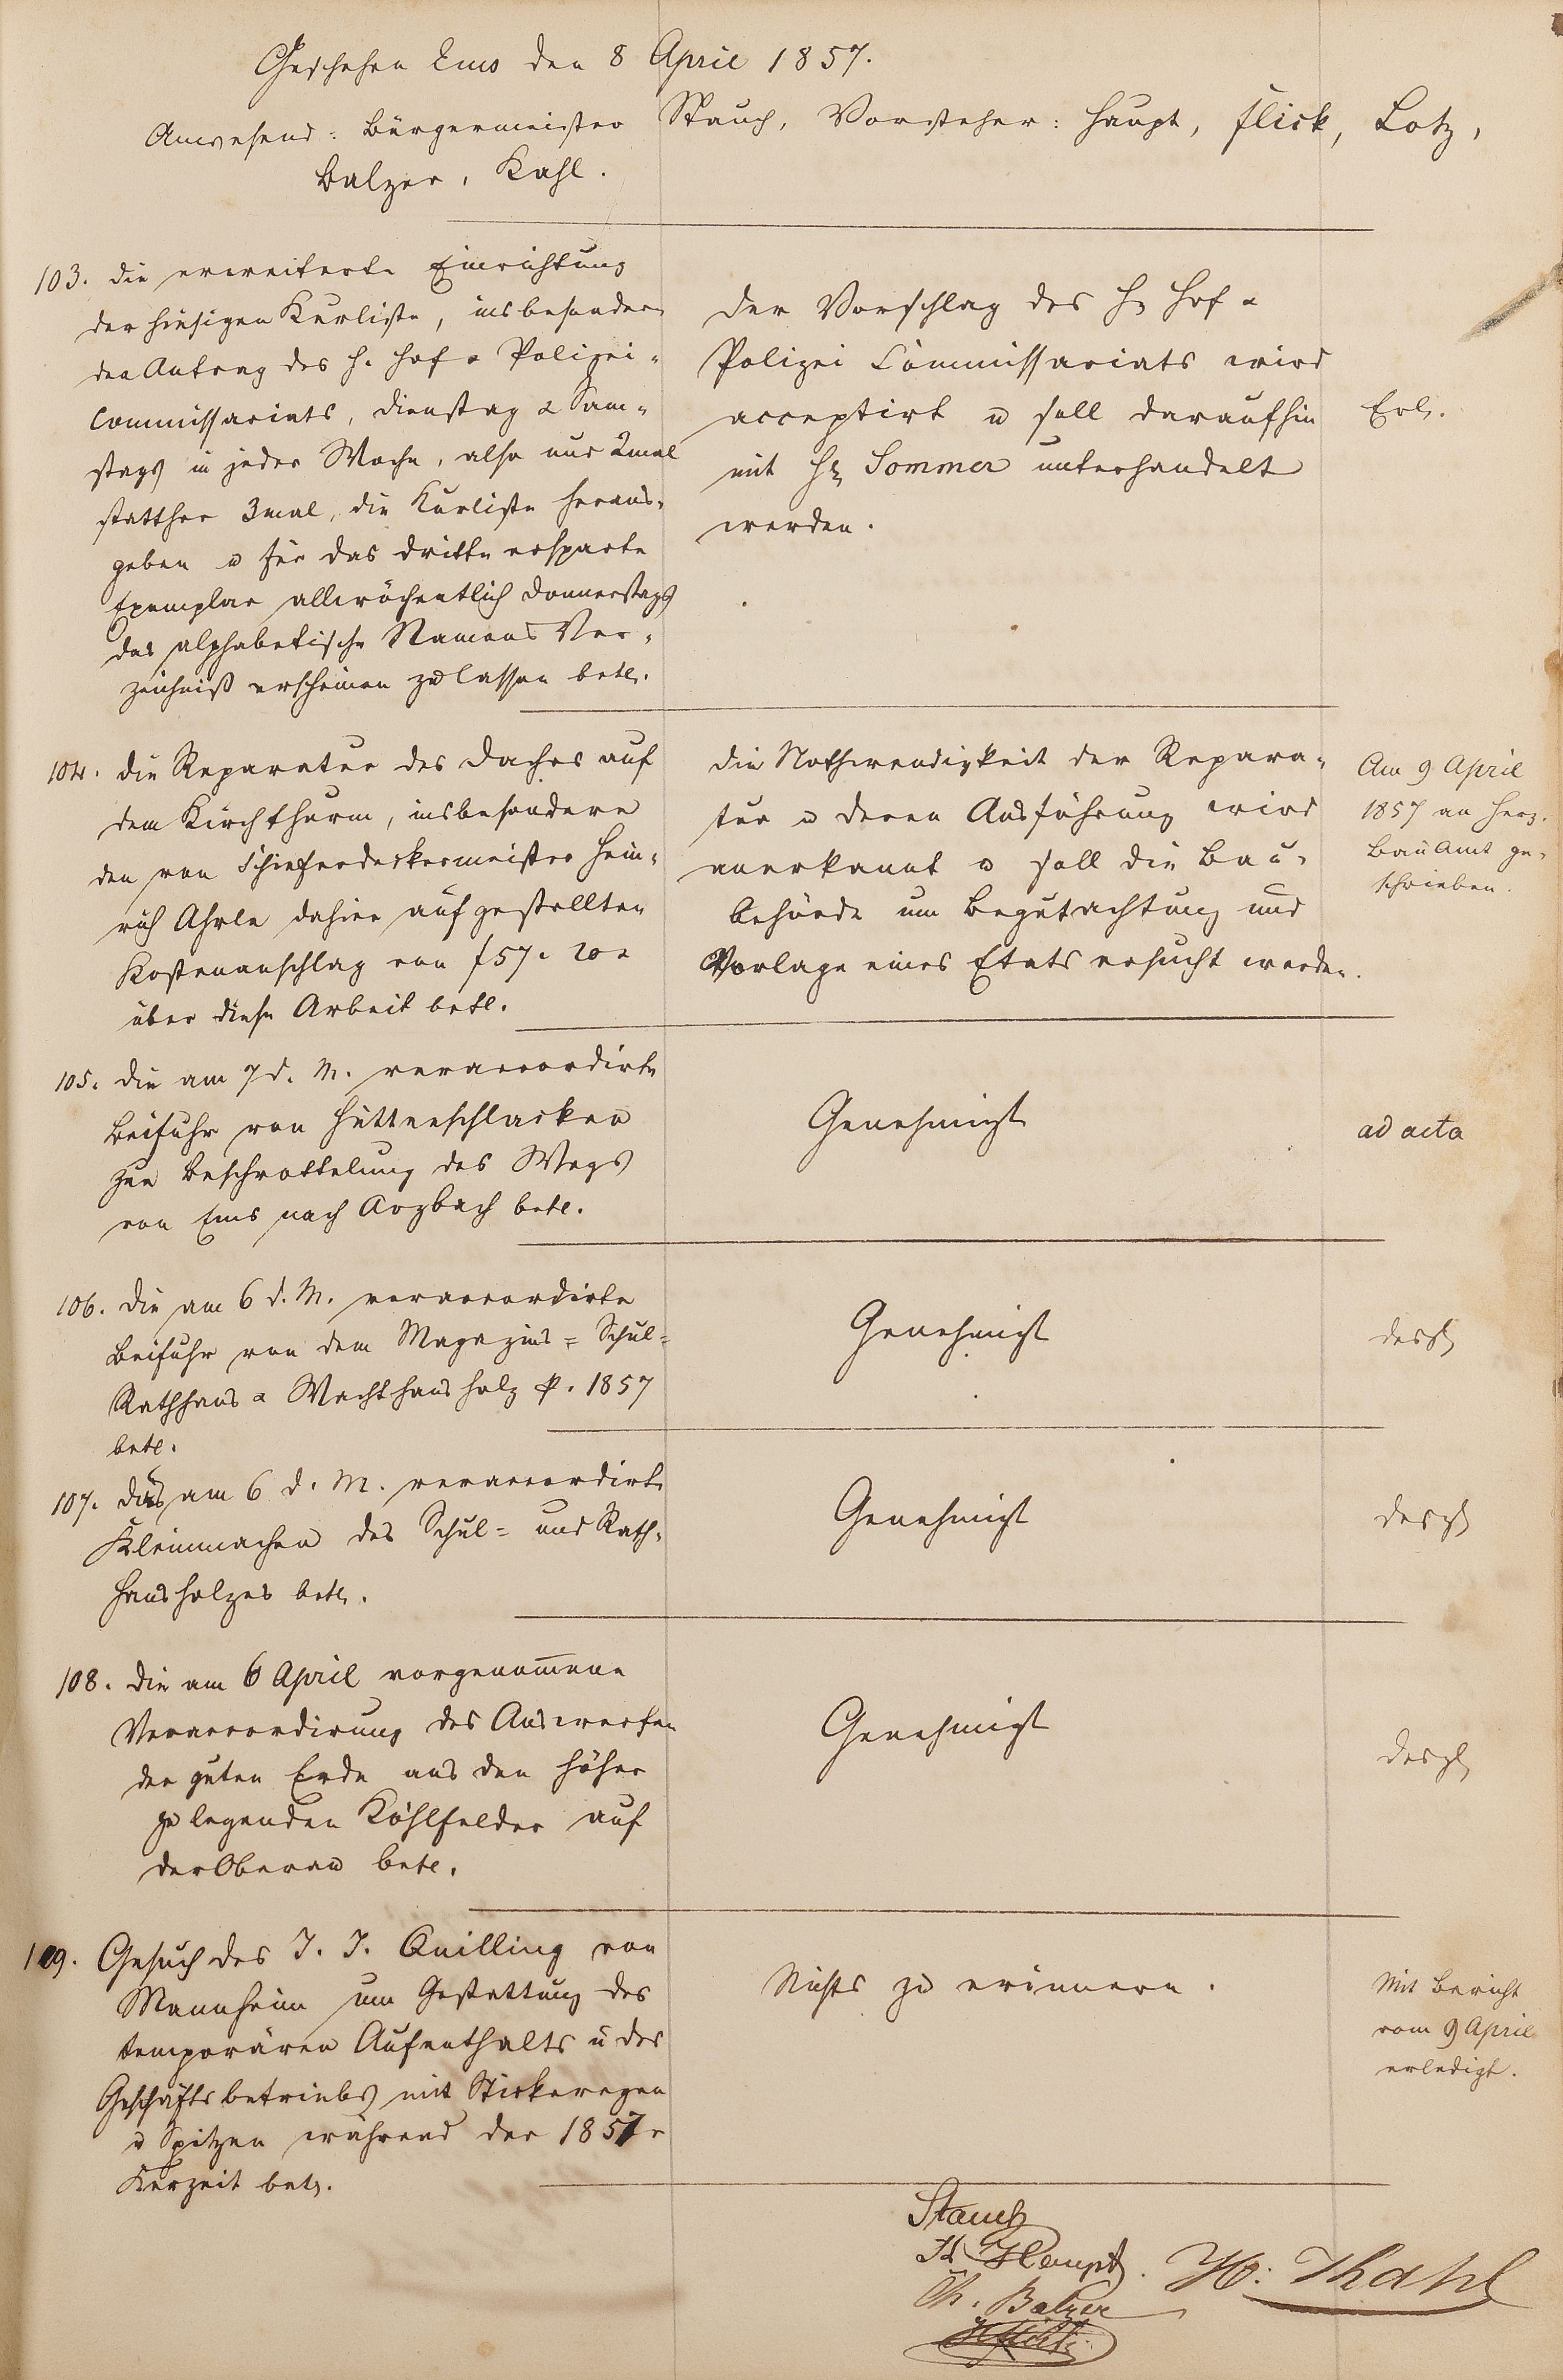 Geschehen Ems den 8 April 1857.
Anwesend: Bürgermeister Stauch, Vorsteher: Haupt, Flick, Lotz,
Balzer, Kahl.
103. Die erweiterte Einrichtung
der hiesigen Kurliste, insbesondere
den Antrag des H. Hof & Polizei-
Commissariats, Dienstag & Sam-
stags in jeder Woche, also nur 2mal
statther 3mal, die Kurliste heraus-
geben u für das dritte ersparte
Exemplar allwöchentlich Donnerstags
das alphabetische Namens Ver-
zeichniß erscheinen zu lassen betr.
Der Vorschlag des H. Hof &
Polizei Commissariats wird
acceptirt u soll daraufhin
mit H. Sommer unterhandelt
werden.
Erl.
104. Die Reparatur des Daches auf
dem Kirchthurm, insbesondere
den von Schieferdeckermeister Hein-
rich Ahrle dahier aufgestellten
Kostenanschlag von f 57. 20 x
über diese Arbeit betr.
Die Nothwendigkeit der Repara-
tur u deren Ausführung wird
anerkannt u soll die Bau-
behörde um Begutachtung und
Vorlage eines Etats ersucht werden.
Am 9 April
1857 an Herz.
BauAmt ge-
schrieben.
105. Die am 7 d. M. veraccordirte
Beifuhr von Hüttenschlacken
zur Beschrottelung des Wegs
von Ems nach Arzbach betr.
Genehmigt
ad acta
106. Die am 6 d. M. veraccordirte
Beifuhr von dem Magazins = Schul=
Rathhaus & Wachthausholz p. 1857
betr.
Genehmigt
desgl
107. Das am 6 d. M. veraccordirte
Kleinmachen des Schul= und Rath-
hausholzes betr.
Genehmigt
desgl
108. Die am 6 April vorgenommene
Veraccordirung des Auswerfen
der guten Erde aus den höher
zu legenden Köhlfelder auf
der Oberau betr.
Genehmigt
desgl
109. Gesuch des J. J. Quilling von
Mannheim um Gestattung des
temporären Aufenthalts u des
Geschäftsbetriebs mit Stickereyen
u Spitzen während der 1857r
Kurzeit betr.
Nichts zu erinnern.
Mit Bericht
vom 9 April
erledigt.
Stauch
Haupt
Ch. Balzer
H: Khahl